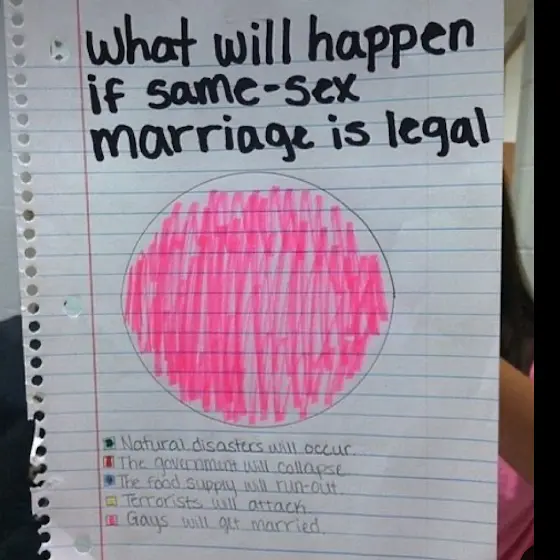 What will happen
if same-sex
marriage is legal
Natural disasters will occur.
The government will collapse
The food supply will run-out.
Terrorists will attack
Gays will get married.